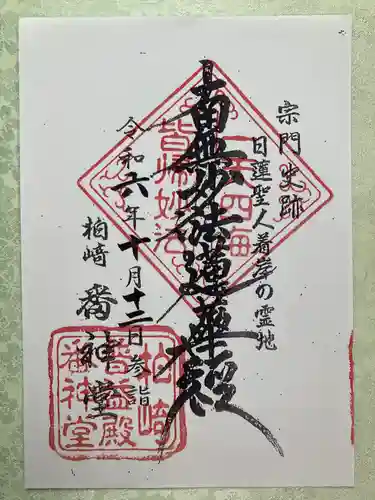 宗門史跡
日蓮聖人着岸の霊地
南無妙法蓮華経
一天四海
皆帰妙法
令和六年十月十二日参詣
柏崎 番神堂
柏崎
番神堂